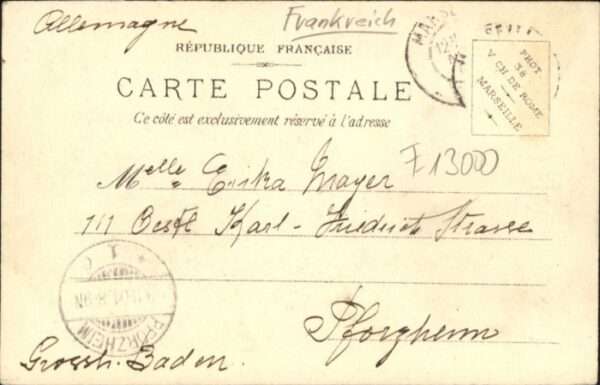 Allemagne
Frankreich
RÉPUBLIQUE FRANÇAISE
CARTE POSTALE
Ce côté est exclusivement réservé à l'adresse
PHOT
38
V CH DE ROME
MARSEILLE
MARSE
F 13000
Melle Erika Mayer
Karl-Friedrich Strasse
Pforzheim
PFORZHEIM
Grossh. Baden.